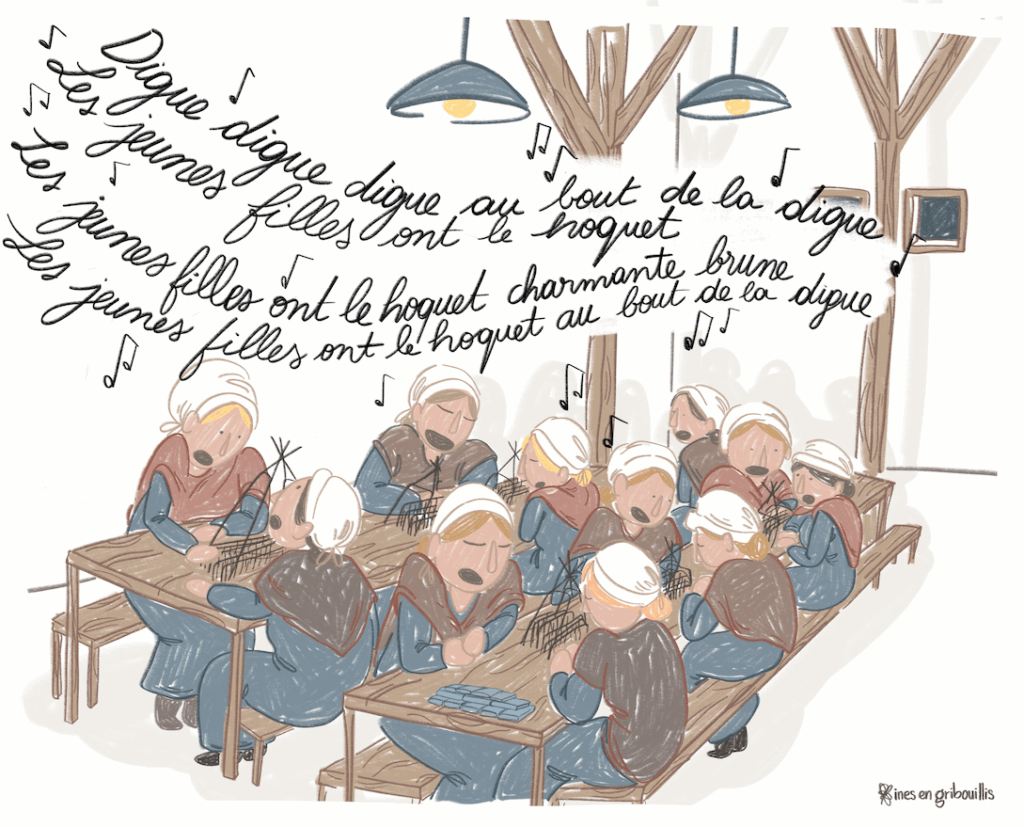 Digue digue digue au bout de la digue
Les jeunes filles ont le hoquet
Les jeunes filles ont le hoquet charmante brune
Les jeunes filles ont le hoquet au bout de la digue
ines en gribouillis